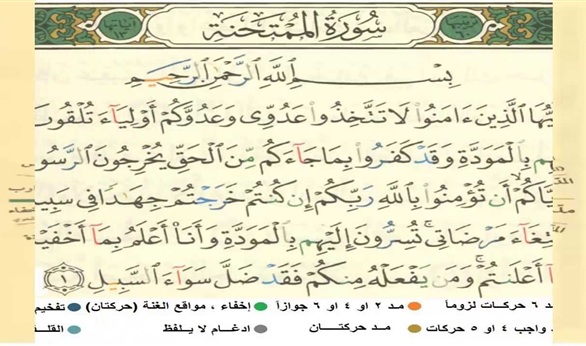 ترتيبها ٦٠ سُورَةُ المُمْتَحنَة آياتها ١٣
بِسْمِ اللَّهِ الرَّحْمَٰنِ الرَّحِيمِ
يُّهَا الَّذِينَ ءَامَنُوا لَا تَتَّخِذُوا عَدُوِّى وَعَدُوَّكُمْ أَوْلِيَآءَ تُلْقُونَ
هِم بِالْمَوَدَّةِ وَقَدْ كَفَرُوا بِمَا جَآءَكُم مِّنَ الْحَقِّ يُخْرِجُونَ الرَّسُو
يَّاكُمْ أَن تُؤْمِنُوا بِاللَّهِ رَبِّكُمْ إِن كُنتُمْ خَرَجْتُمْ جِهَٰدًا فِى سَبِي
تِغَآءَ مَرْضَاتِى تُسِرُّونَ إِلَيْهِم بِالْمَوَدَّةِ وَأَنَا أَعْلَمُ بِمَآ أَخْفَيْ
آ أَعْلَنتُمْ وَمَن يَفْعَلْهُ مِنكُمْ فَقَدْ ضَلَّ سَوَآءَ السَّبِيلِ ١
ـد ٦ حركات لزوماً مد ٢ او ٤ او ٦ جوازاً إخفاء، مواقع الغنة (حركتان) تفخيم
د واجب ٤ او ٥ حركات مد حركتـــان ادغام لا يلفظ القلـ